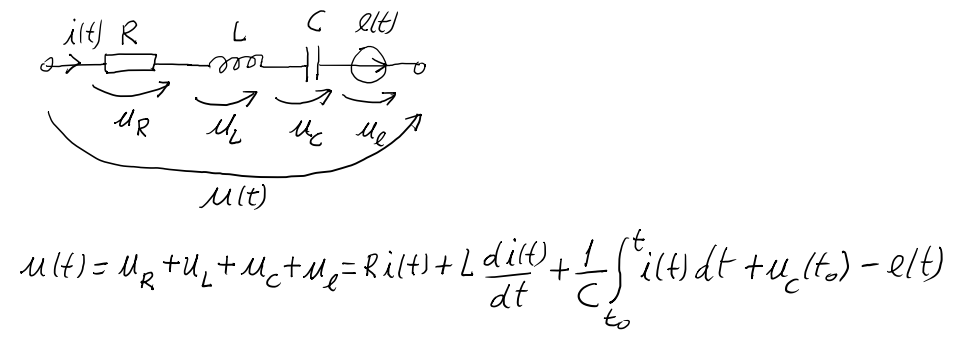 i(t) R L C e(t)
u_R u_L u_C u_e
u(t)
u(t) = u_R + u_L + u_C + u_e = R i(t) + L di(t)/dt + 1/C ∫_{t_0}^{t} i(t) dt + u_C(t_0) - e(t)